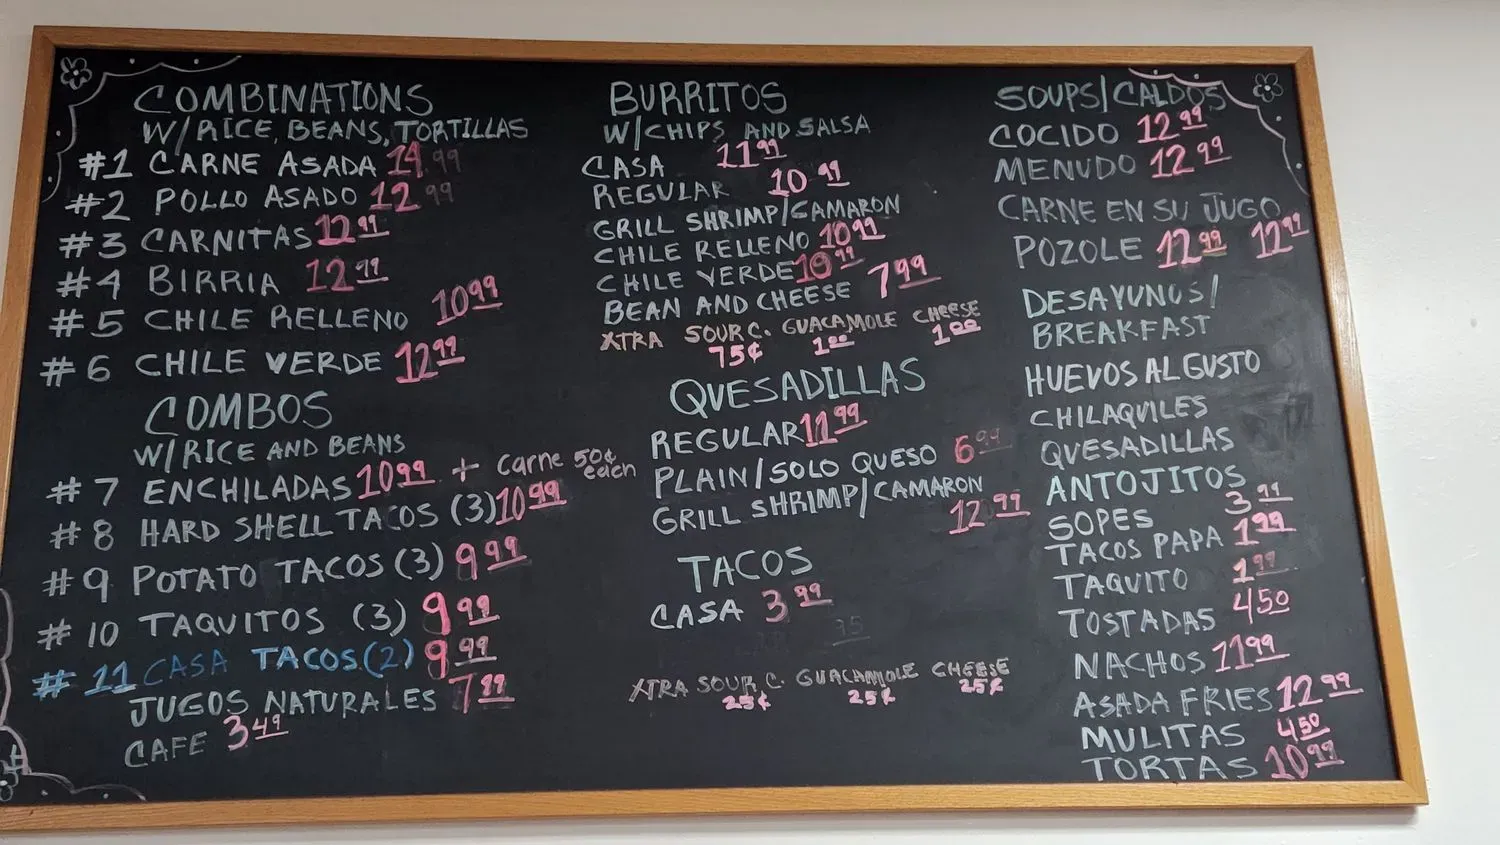 COMBINATIONS
W/RICE, BEANS, TORTILLAS
#1 CARNE ASADA 14.99
#2 POLLO ASADO 12 99
#3 CARNITAS 12.99
#4 BIRRIA 12.99
#5 CHILE RELLENO 1099
#6 CHILE VERDE 12.99
COMBOS
W/RICE AND BEANS
#7 ENCHILADAS 10.99 + carne 50¢ each
#8 HARD SHELL TACOS (3) 10.99
#9 POTATO TACOS (3) 9 99
#10 TAQUITOS (3) 9 99
#11 CASA TACOS (2) 9 99
JUGOS NATURALES 7.99
CAFE 3.49
BURRITOS
W/CHIPS AND SALSA
CASA 11 99
REGULAR 10 99
GRILL SHRIMP/CAMARON
CHILE RELLENO 10 99
CHILE VERDE 10 99
BEAN AND CHEESE 7 99
XTRA SOUR C. GUACAMOLE CHEESE
75¢ 1.00 1.00
QUESADILLAS
REGULAR 11 99
PLAIN/SOLO QUESO 6 99
GRILL SHRIMP/CAMARON
12 99
TACOS
CASA 3 99
XTRA SOUR C. GUACAMOLE CHEESE
25¢ 25¢ 25¢
SOUPS/CALDOS
COCIDO 12 99
MENUDO 12 99
CARNE EN SU JUGO
POZOLE 12 99 12 99
DESAYUNOS/
BREAKFAST
HUEVOS AL GUSTO
CHILAQUILES
QUESADILLAS
ANTOJITOS
SOPES 3 99
TACOS PAPA 1 99
TAQUITO 1 99
TOSTADAS 4 50
NACHOS 11 99
ASADA FRIES 12 99
MULITAS 4 50
TORTAS 10 99